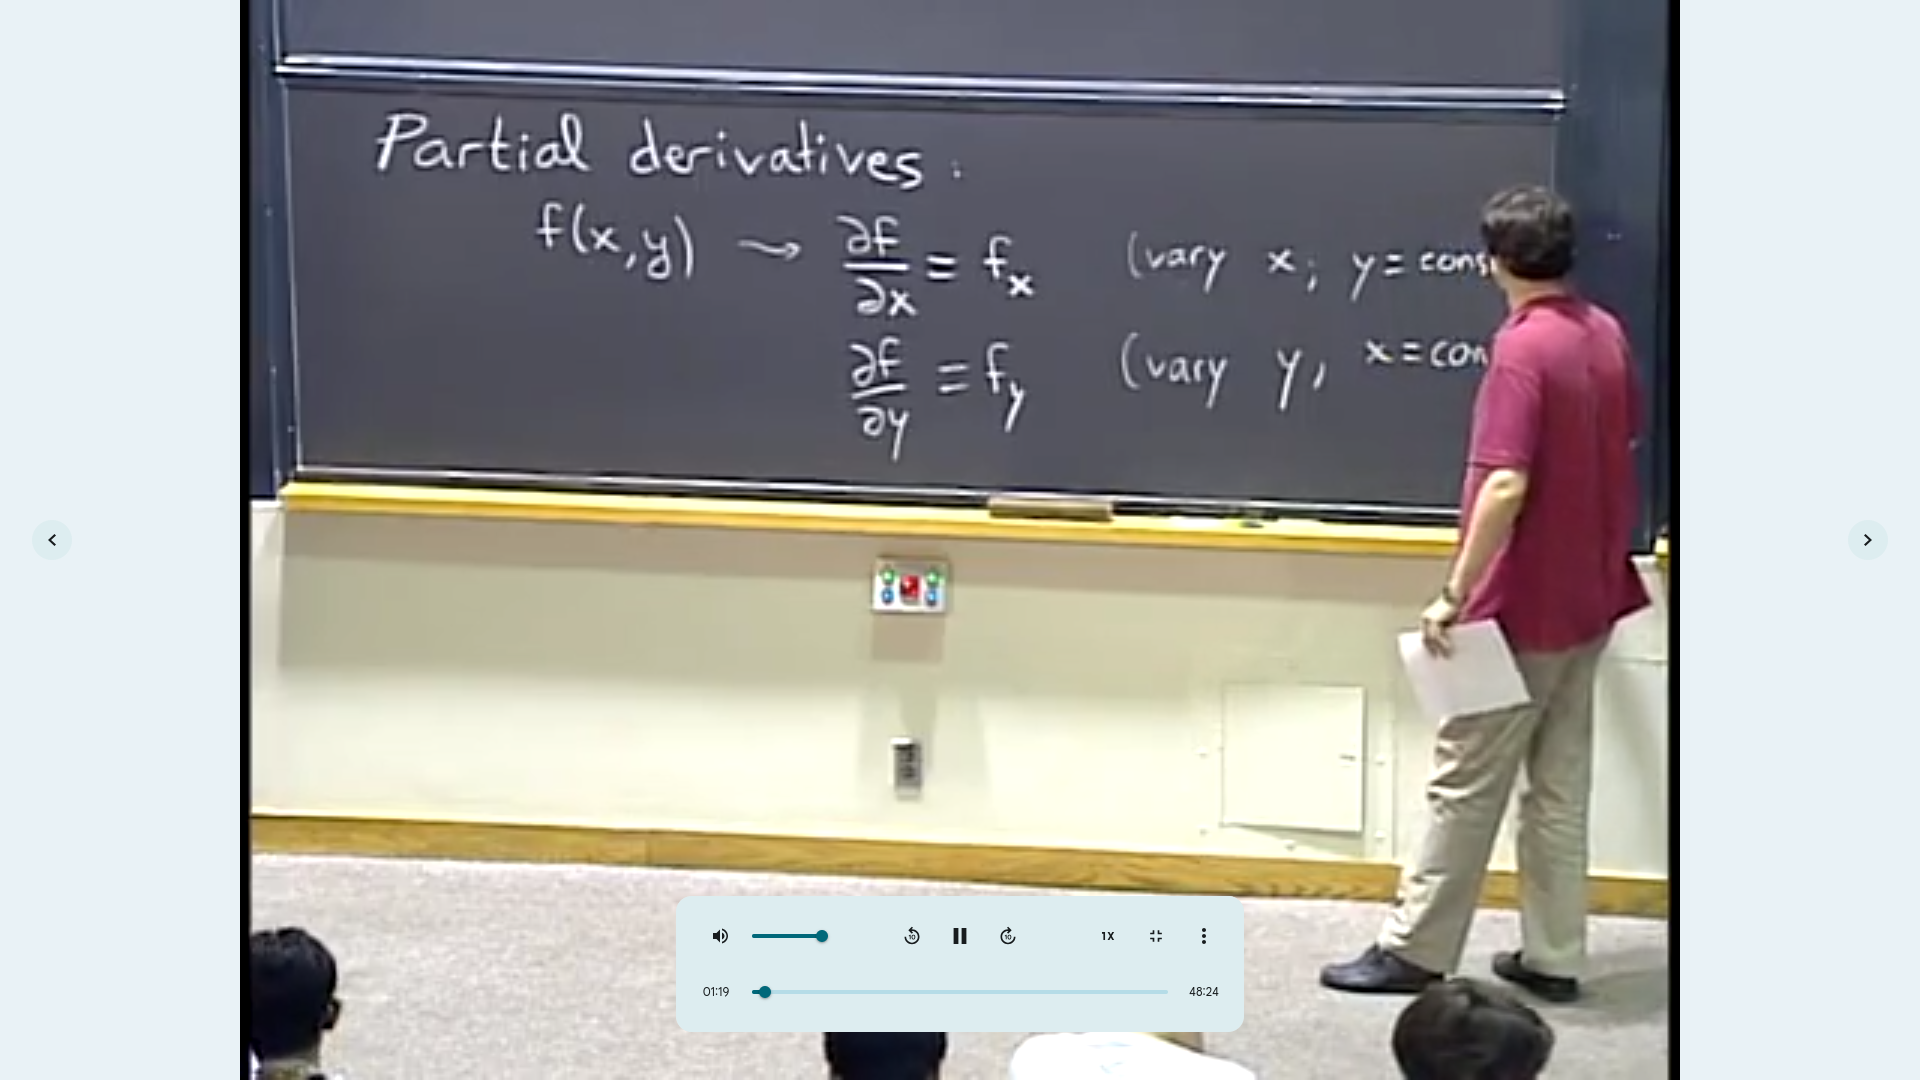 Partial derivatives:
f(x,y) → ∂f/∂x = fₓ (vary x; y = cons
∂f/∂y = f_y (vary y, x = con
1X
01:19
48:24